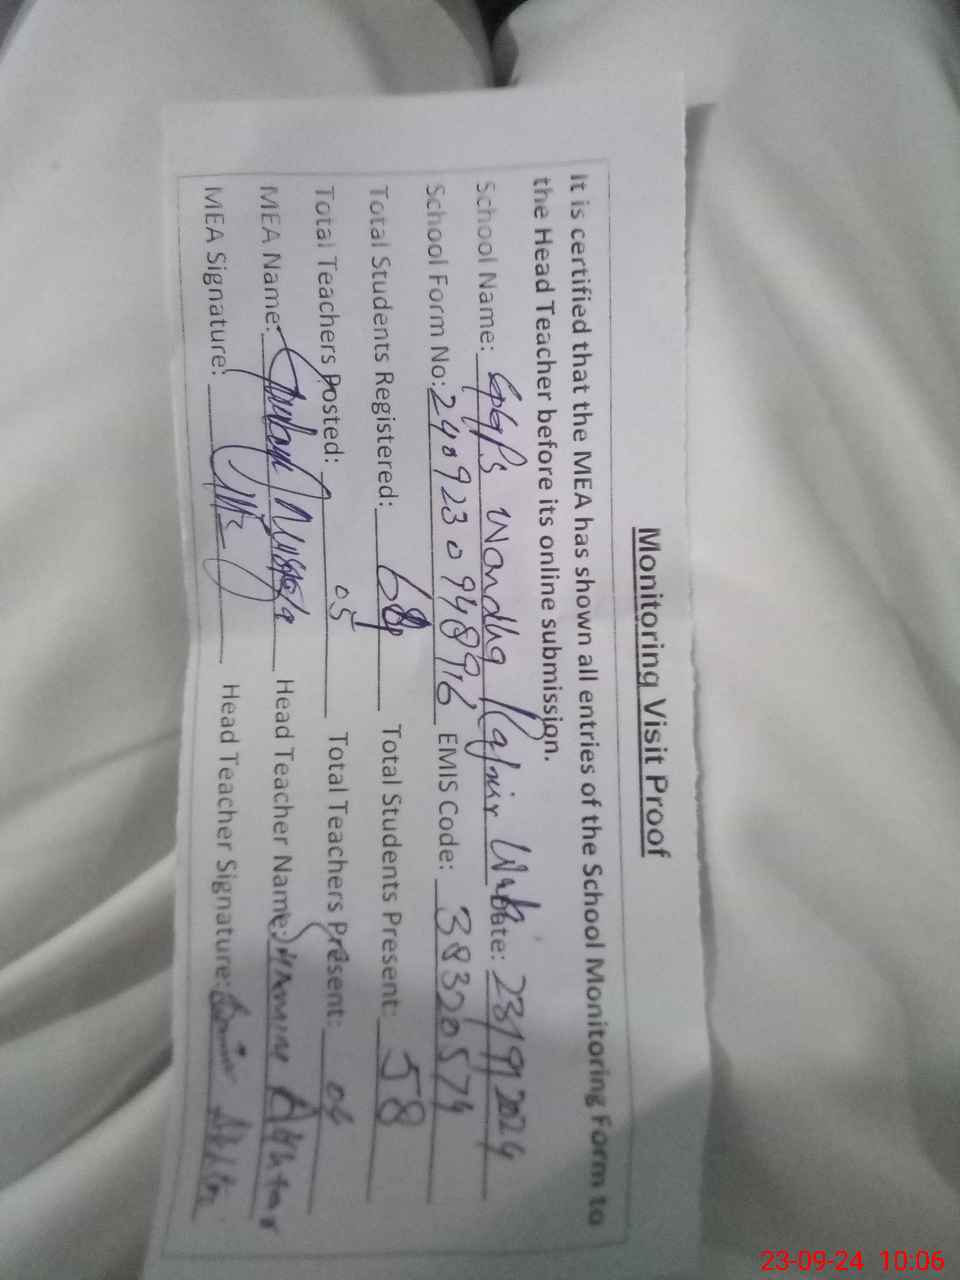 Monitoring Visit Proof
It is certified that the MEA has shown all entries of the School Monitoring Form to
the Head Teacher before its online submission.
School Name: GGPS Wandhg Date: 23/9/2024
School Form No: 240923094896 EMIS Code: 38320574
Total Students Registered: 68 Total Students Present: 58
Total Teachers Posted: 05 Total Teachers Present: 04
MEA Name: Mustafa Head Teacher Name: Akhtar
MEA Signature: Head Teacher Signature:
23-09-24 10:06